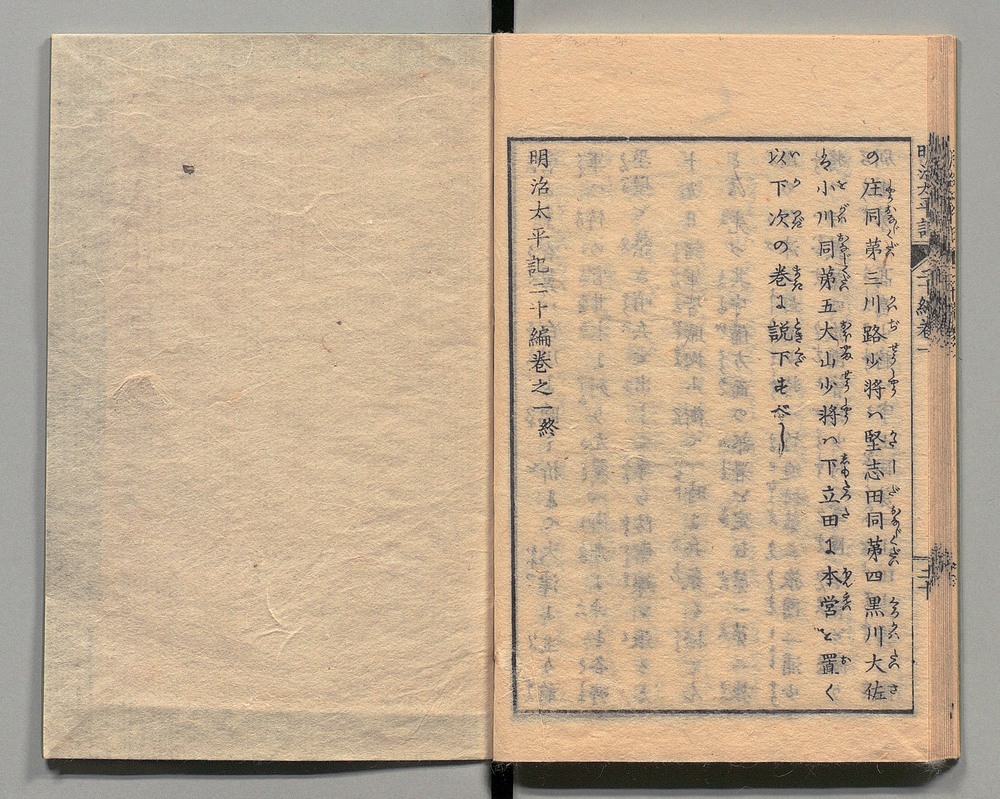 明治太平記 二十編卷一
二十
の庄同第三川路少将ハ堅志田同第四黒川大佐
ハ小川同第五大山少将ハ下立田に本営を置く
以下次の巻に説下すべし
明治太平記二十編巻之一終